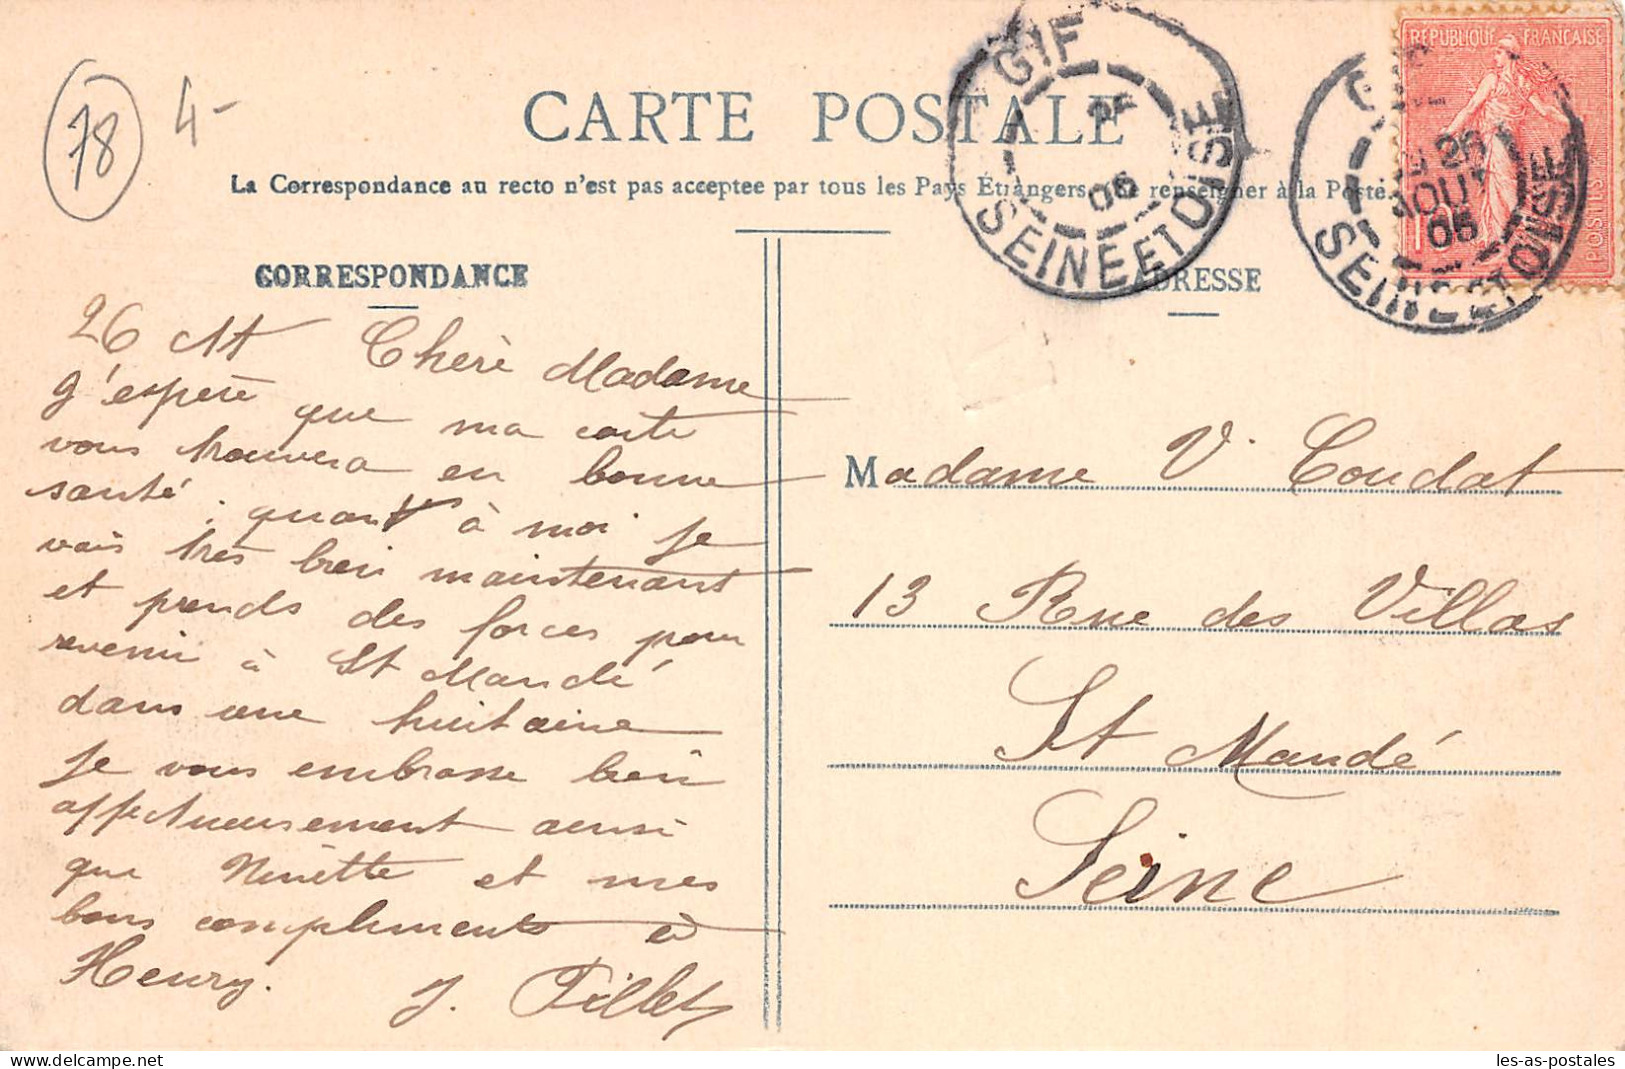 78 4-
CARTE POSTALE
La Correspondance au recto n'est pas acceptee par tous les Pays Étrangers. Se renseigner à la Poste.
GIF
26
06
SEINE ET OISE
REPUBLIQUE FRANÇAISE
POSTES
10
26
AOUT
06
SEINE ET OISE
CORRESPONDANCE
ADRESSE
26 At Chère Madame
J'espère que ma carte
vous trouvera en bonne
santé, quant à moi je
vais très bien maintenant
et prends des forces pour
revenir à St Mandé
dans une huitaine
Je vous embrasse bien
affectueusement ainsi
que Ninette et mes
bons compliments à
Henry. J. Pillet
Madame V. Coudat
13 Rue des Villas
St Mandé
Seine
les-as-postales